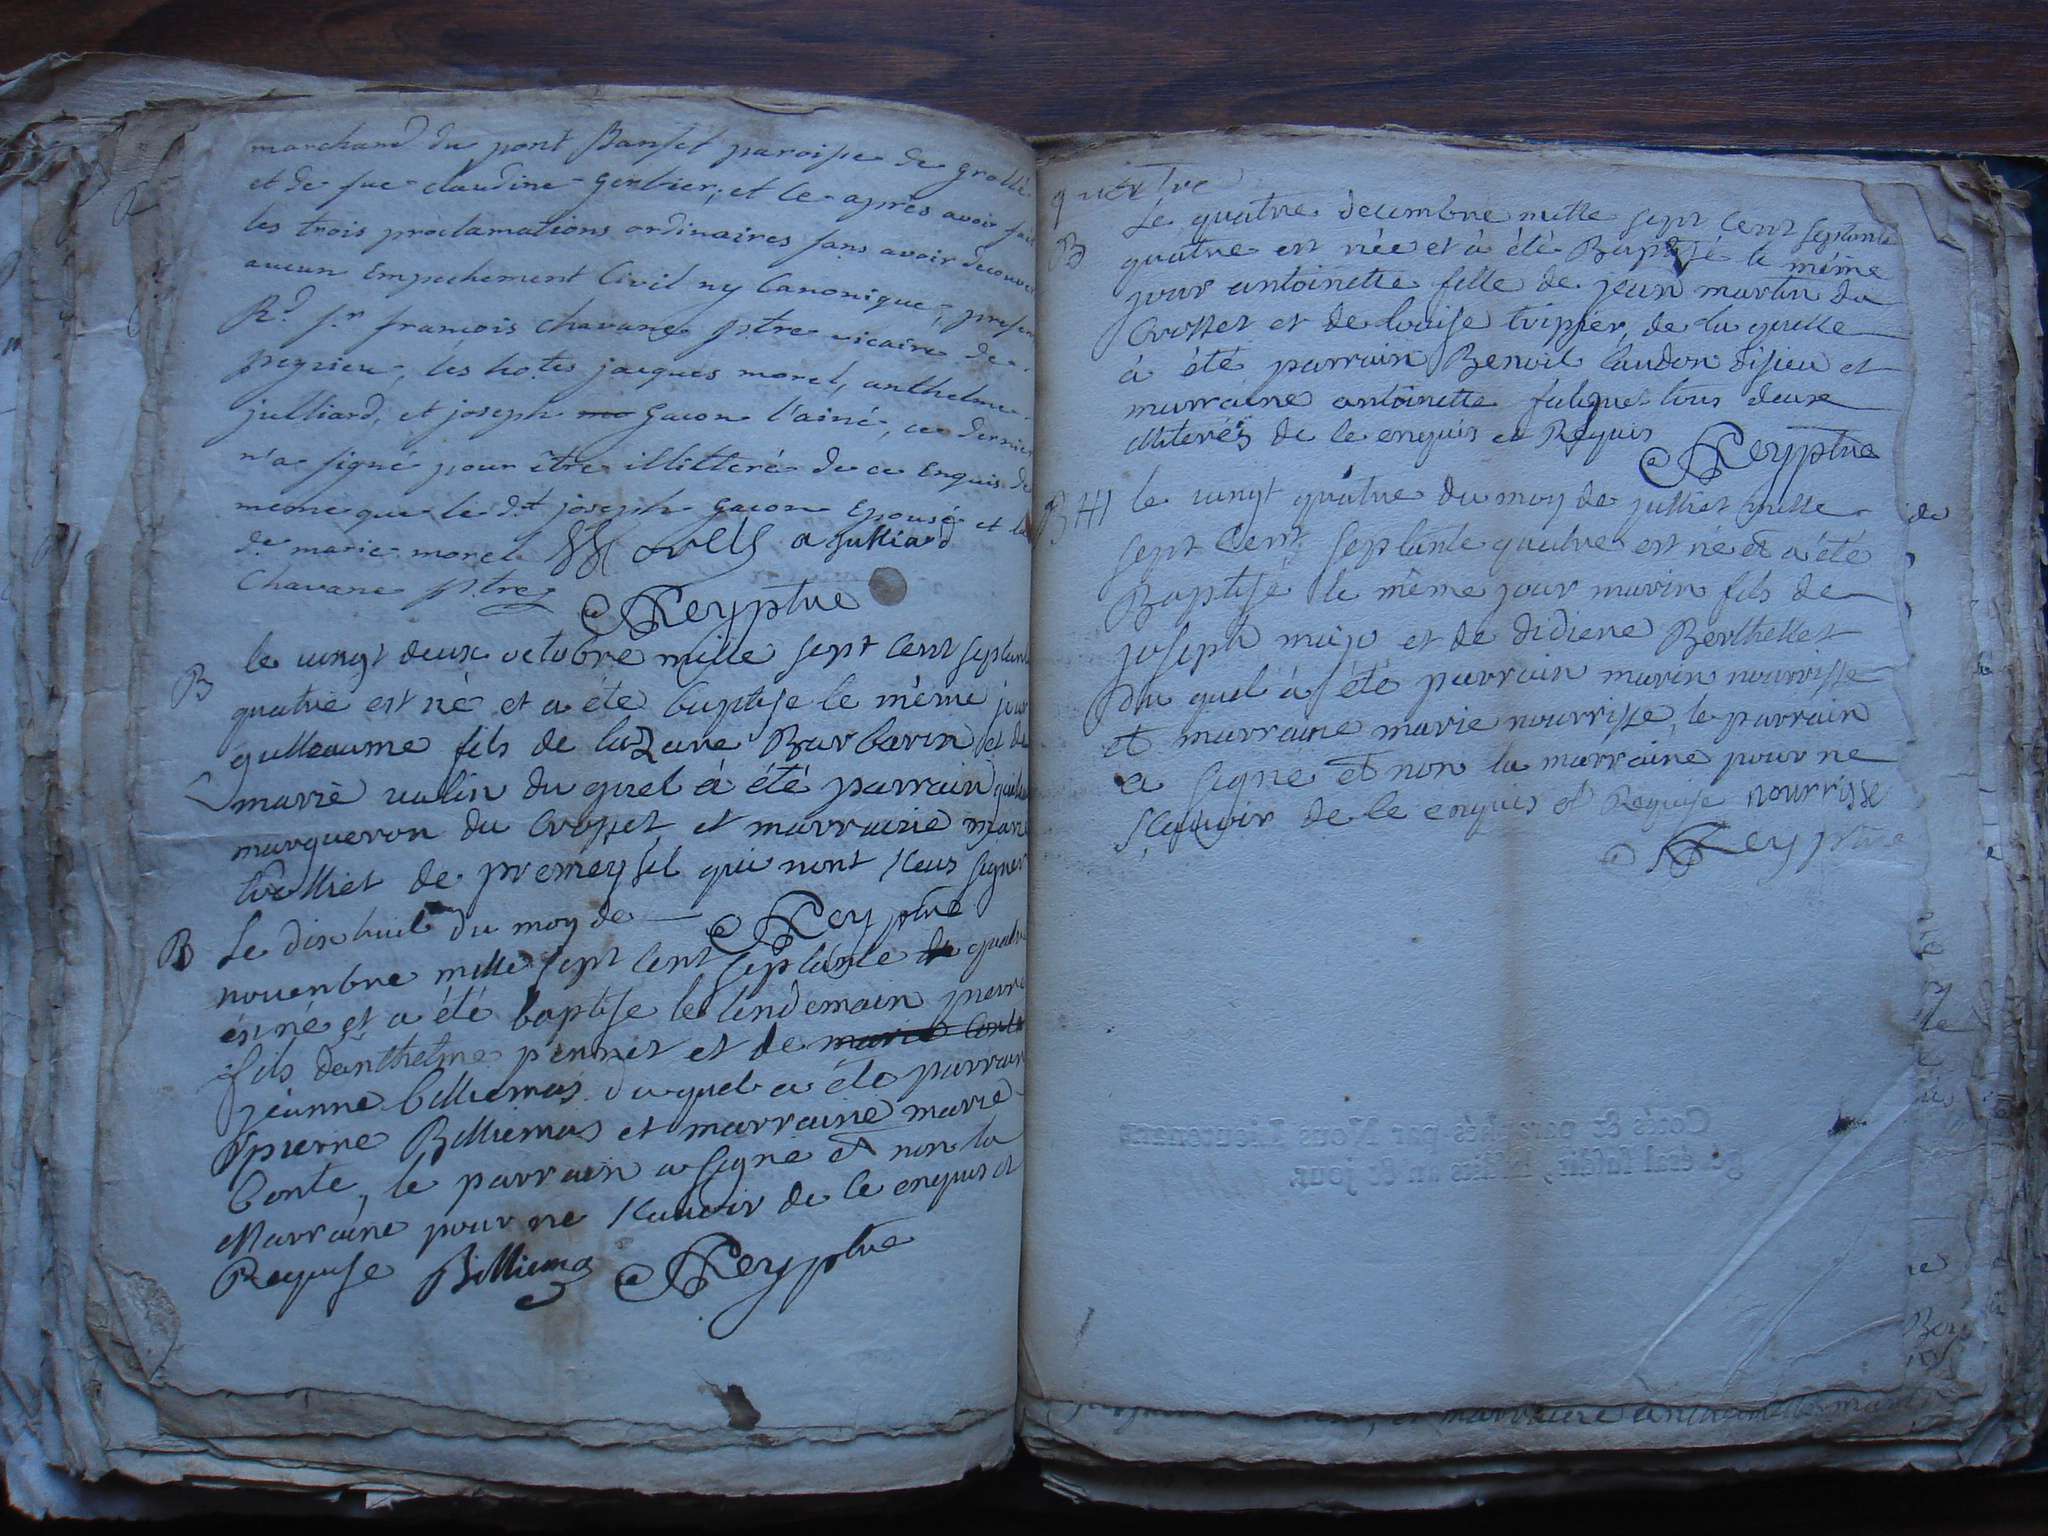 marchand du pont Banset paroisse de grolle
et de fue claudine gerbier, et ce apres avoir fait
les trois proclamations ordinaires sans avoir decouver
aucun Empechement Civil ny Canonique, presen
Rd sr francois chavane ptre vicaire de
peyrieu, les hotes jacques morel, anthelme
julliard, et joseph gacon l'ainé, ce dernier
n'a signé pour être illitteré de ce Enquis de
meme que le dt joseph gacon Epousé et la
de marie morel Morels a julliard
Chavane ptre
Rey ptre
B le vingt deux octobre mille sept cent septante
quatre est né et a été baptise le même jour
gulleaume fils de lazare Barbarin et de
marie valin du quel à été parrain guile
marqueron du Crosset et marraine marie
trolliet de premeysel qui nont sceus signer
Rey ptre
B Le dix huit du moy de
novenbre mille sept cent septante quatre
est né et a été baptise le lendemain pierre
fils d'anthelme pennet et de marie Conte
jeanne billiemas du quel a été parrain
pierre Billiemas et marraine marie
Conte, le parrain a signe et non la
Marraine pour ne scauoir de le enquis et
Requise Billiemas Rey ptre
quatre
B Le quatre decembre mille sept cent septante
quatre est née et à été Baptisé le même
jour antoinette fille de jean martin du
Crosset et de louise trippier, de la quelle
à été parrain Benoit landon disieu et
marraine antoinette faliquet tous deux
illiterés de le enquis et Requis
Rey ptre
B le vingt quatre du moy de julliet mille
sept cent septante quatre est né et a été
Baptisé le même jour marin fils de
joseph et de didiere Berthellet
du quel à été parrain marin nourrisse
et marraine marie nourrisse, le parrain
a signe et non la marraine pour ne
scauoir de le enquis et Requise nourrisse
Rey ptre
Cotés & paraphés par Nous Lieutenant
général susdit, lesdits an & jour.
et marraine